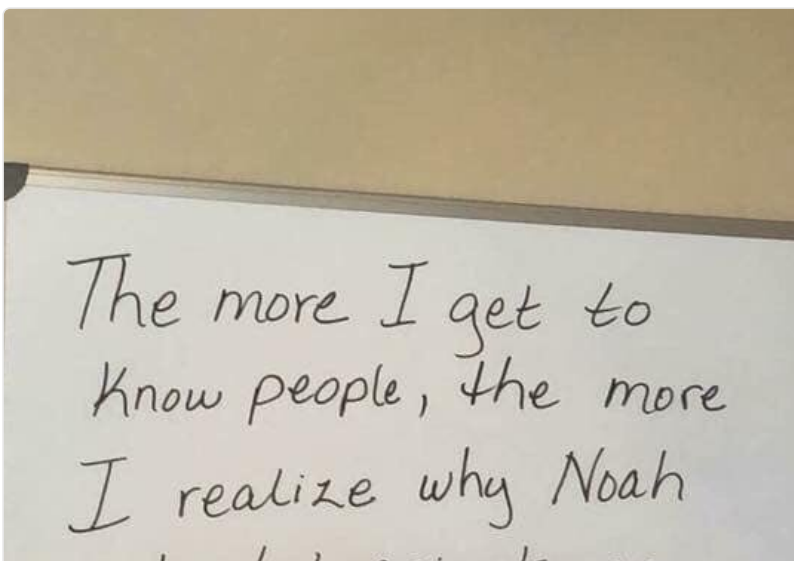 The more I get to
know people, the more
I realize why Noah